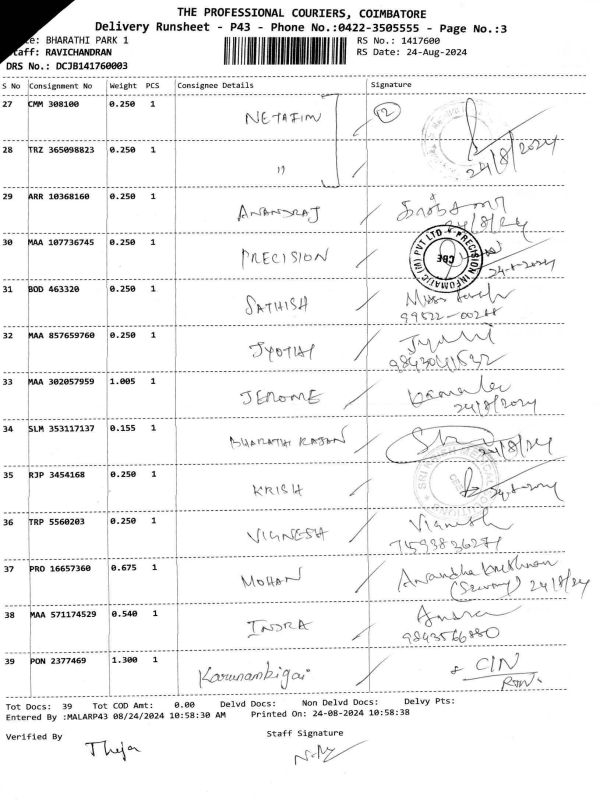 THE PROFESSIONAL COURIERS, COIMBATORE
Delivery Runsheet - P43 - Phone No.:0422-3505555 - Page No.:3
: BHARATHI PARK 1
RS No.: 1417600
Staff: RAVICHANDRAN
RS Date: 24-Aug-2024
DRS No.: DCJB141760003
S No Consignment No Weight PCS Consignee Details Signature
27 CMM 308100 0.250 1 NETAFIM 12
28 TRZ 365098823 0.250 1 " 24/8/2024
29 ARR 10368160 0.250 1 ANANDRAJ 24/8/24
30 MAA 107736745 0.250 1 PRECISION PRECISION INFOMATIC (M) PVT LTD CBE
31 BOD 463320 0.250 1 SATHISH
32 MAA 857659760 0.250 1 JYOTHI
33 MAA 302057959 1.005 1 JEROME 24/8/2024
34 SLM 353117137 0.155 1 BHARATHI RAJAN 24/8/24
35 RJP 3454168 0.250 1 KRISH
36 TRP 5560203 0.250 1 VIGNESH Vignesh
37 PRO 16657360 0.675 1 MOHAN 24/8/24
38 MAA 571174529 0.540 1 INDRA 9843566880
39 PON 2377469 1.300 1 Karunambigai CIN
Tot Docs: 39 Tot COD Amt: 0.00 Delvd Docs: Non Delvd Docs: Delvy Pts:
Entered By :MALARP43 08/24/2024 10:58:30 AM Printed On: 24-08-2024 10:58:38
Verified By Staff Signature
Theja